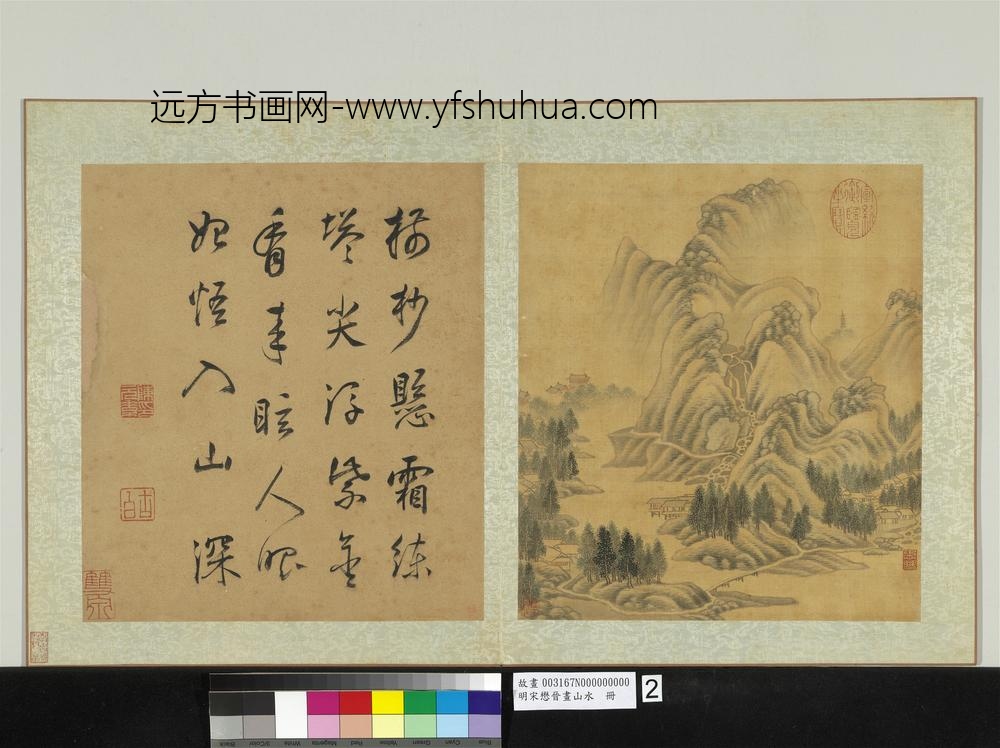 远方书画网-www.yfshuhua.com
樹杪懸霜練
塔尖浮紫金
看來眩人眼
始悟入山深
故畫003167N000000000
明宋懋晉畫山水 冊
2
Blue Cyan Green Yellow Red Magenta White 3/Color Black